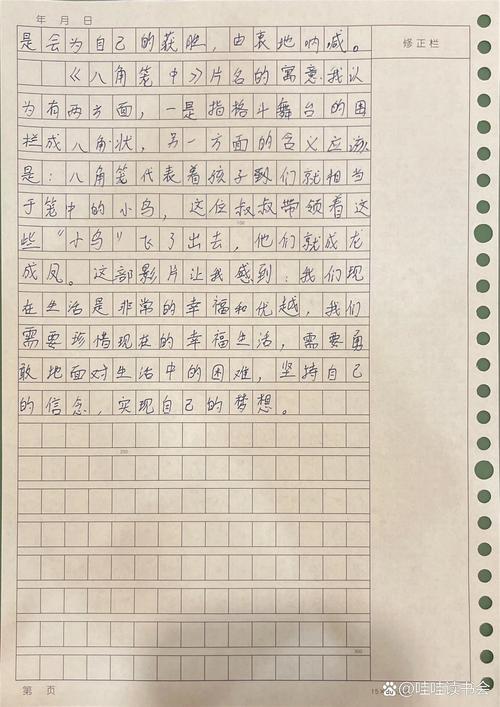 年 月 日
修正栏
是会为自己的获胜，由衷地呐喊。
《八角笼中》片名的寓意我认
为有两方面，一是指格斗舞台的围
栏成八角状，另一方面的含义应该
是：八角笼代表着孩子们就相当
于笼中的小鸟，这位叔叔带领着这
些“小鸟”飞了出去，他们就成龙
成凤。这部影片让我感到：我们现
在生活是非常的幸福和优越，我们
需要珍惜现在的幸福生活，需要勇
敢地面对生活中的困难，坚持自己
的信念，实现自己的梦想。
第 页
@哇哇读书会